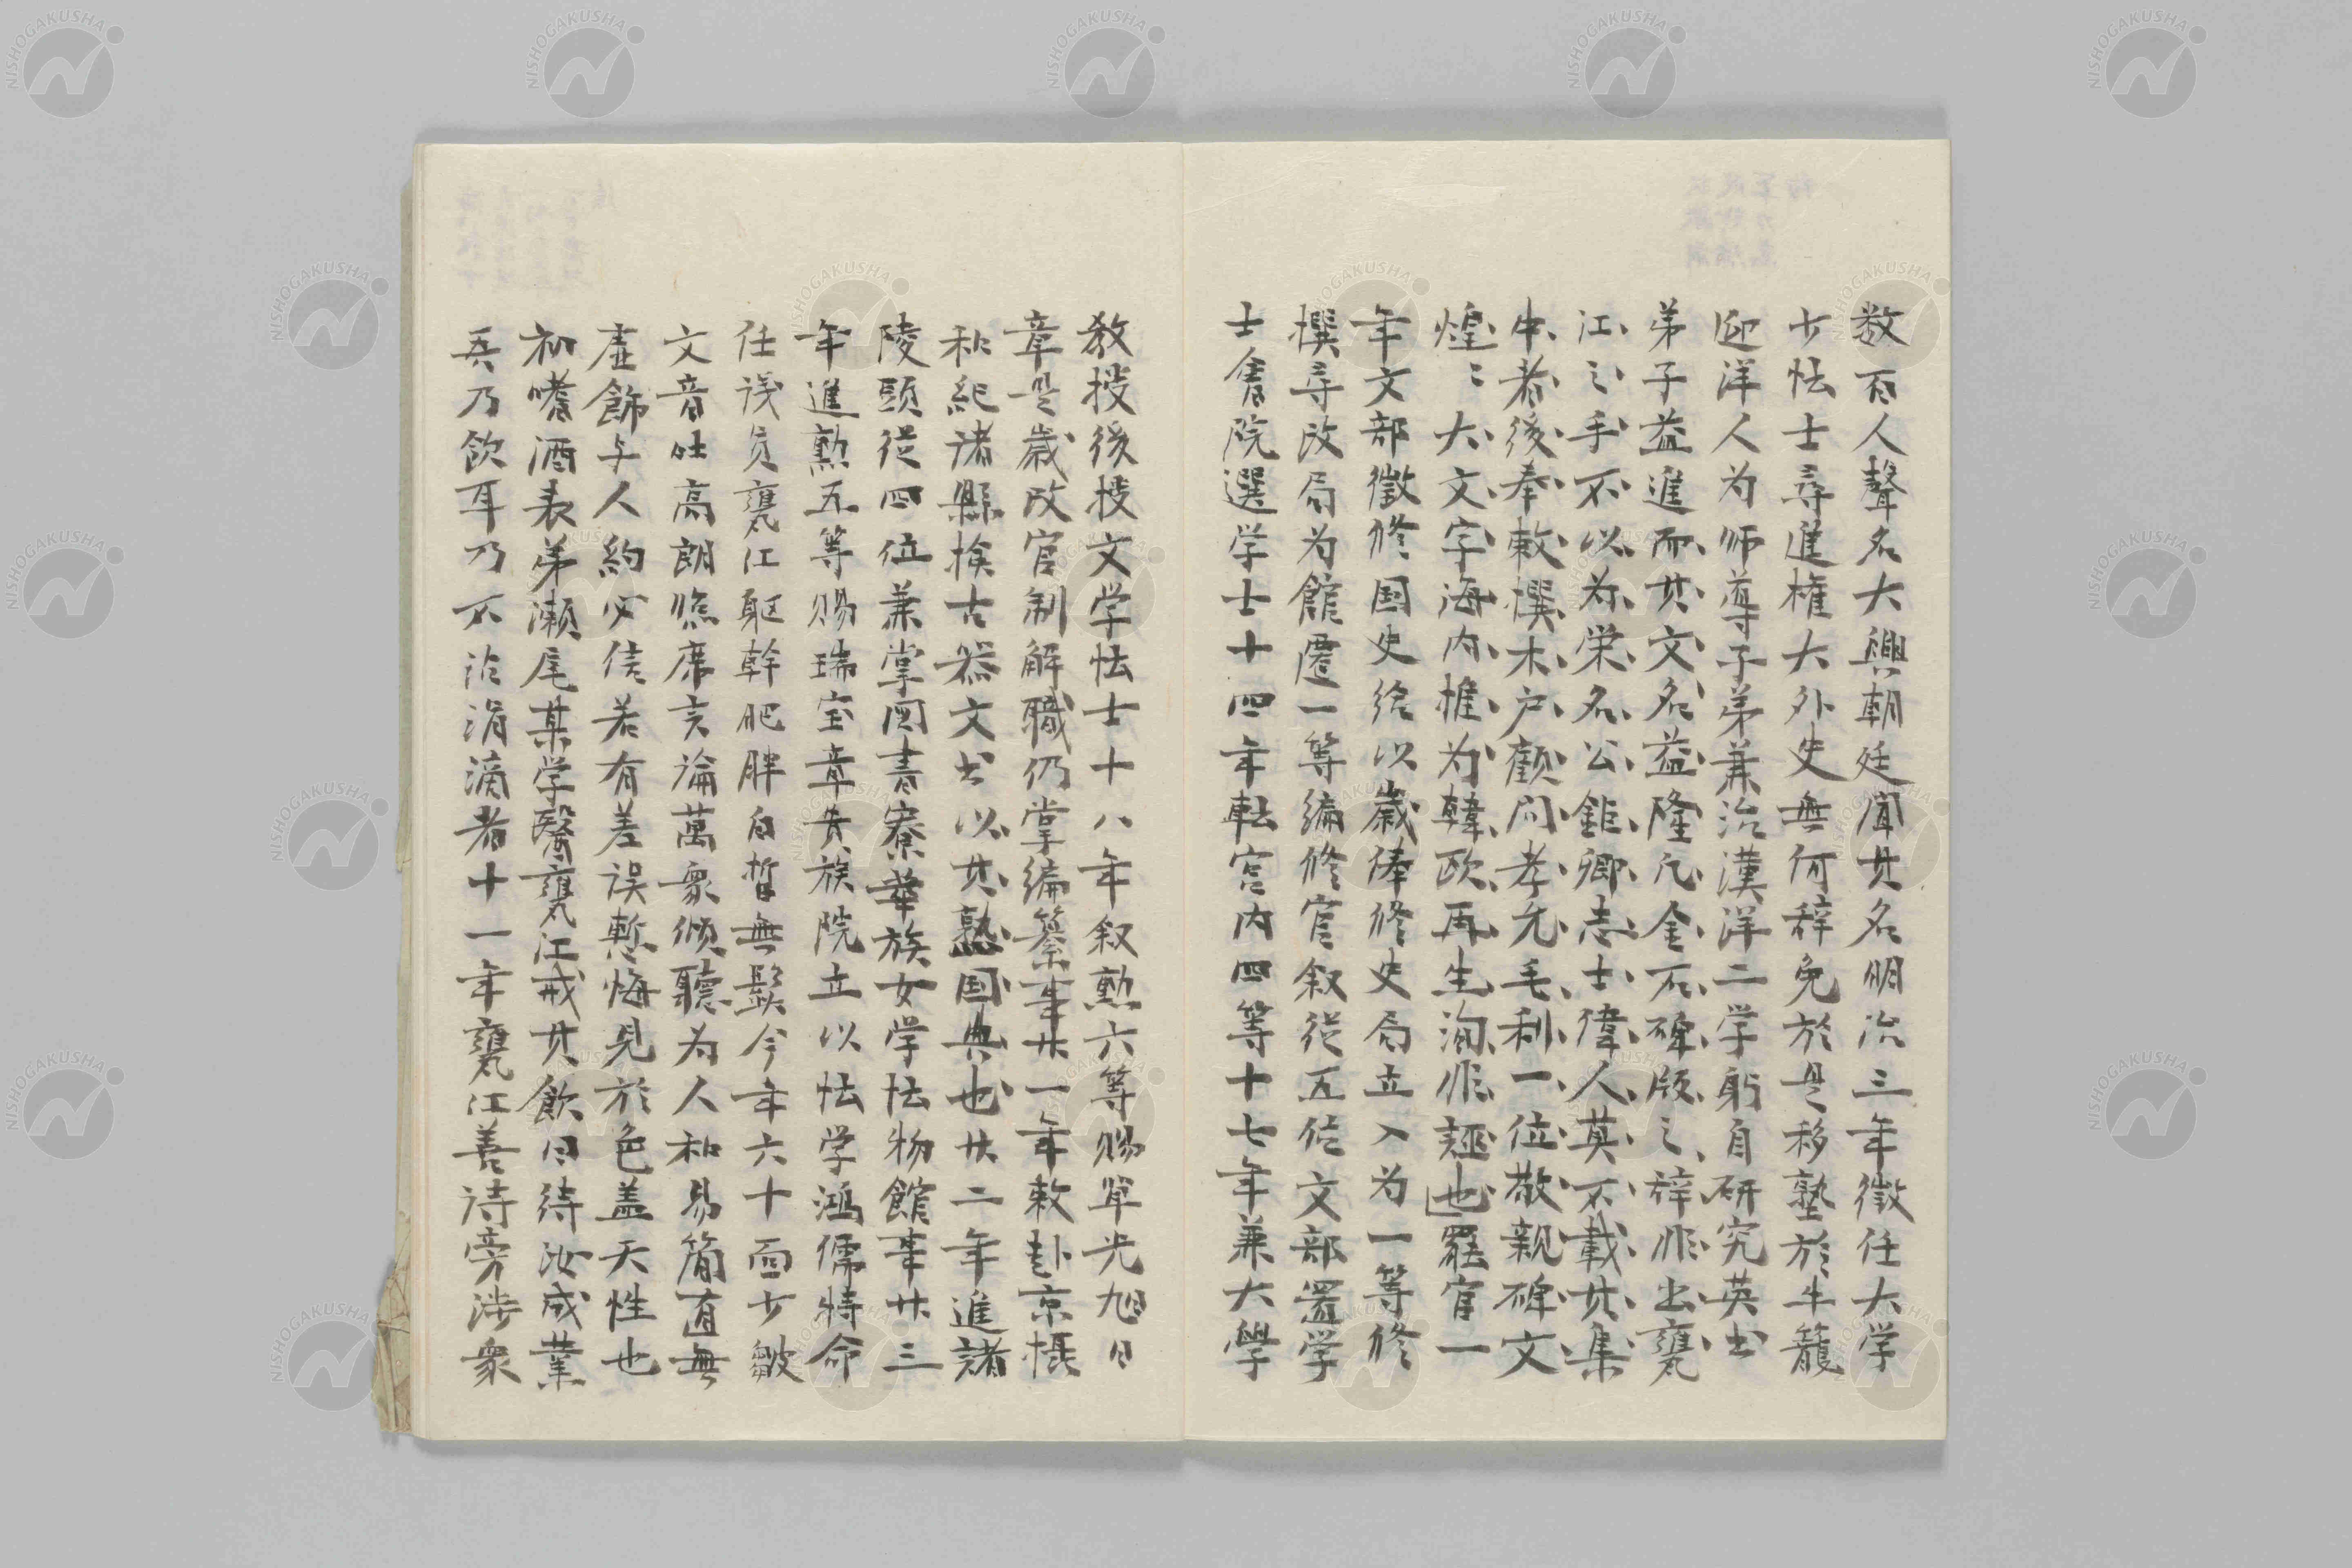 数百人聲名大興朝廷聞其名明治三年徵任大学
少怯士尋進権大外史無何辞免於是移塾於牛籠
迎洋人为师導子弟兼治漢洋二学躬自研究英书
弟子益進而其文名益隆凡金石碑版之辞非出甕
江之手不以为栄名公鉅卿志士偉人莫不載其集
中者後奉敕撰木户顧问孝允毛利一位敬親碑文
煌〻大文字海内推为韓欧再生洵非誣也罷官一
年文部徵修国史给以歳俸修史局立入为一等修
撰尋改局为館遷一等編修官叙従五位文部置学
士會院選学士十四年転宮内四等十七年兼大學
教授後授文学怯士十八年叙勲六等赐单光旭日
章是歳改官制解職仍掌編纂事廿一年敕赴京摂
和紀诸縣検古器文书以其熟国典也廿二年進諸
陵頭従四位兼掌図書寮華族女学怯物館事廿三
年進勲五等赐瑞宝章貴族院立以怯学鴻儒特命
任議员甕江躯幹肥胖白皙無鬚今年六十面少皺
文音吐高朗臨席言論萬衆傾聽为人和易簡直無
虚飾与人約必信若有差误慙悔見於色盖天性也
初嗜酒表弟瀬尾某学醫甕江戒其飲曰待汝成業
吾乃飲耳乃不沾涓滴者十一年甕江善诗旁渉衆
NISHOGAKUSHA